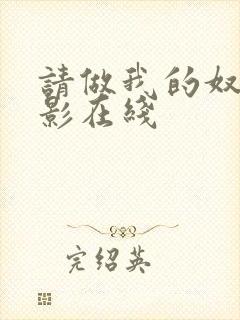 請做我的奴
影在綫
完绍英